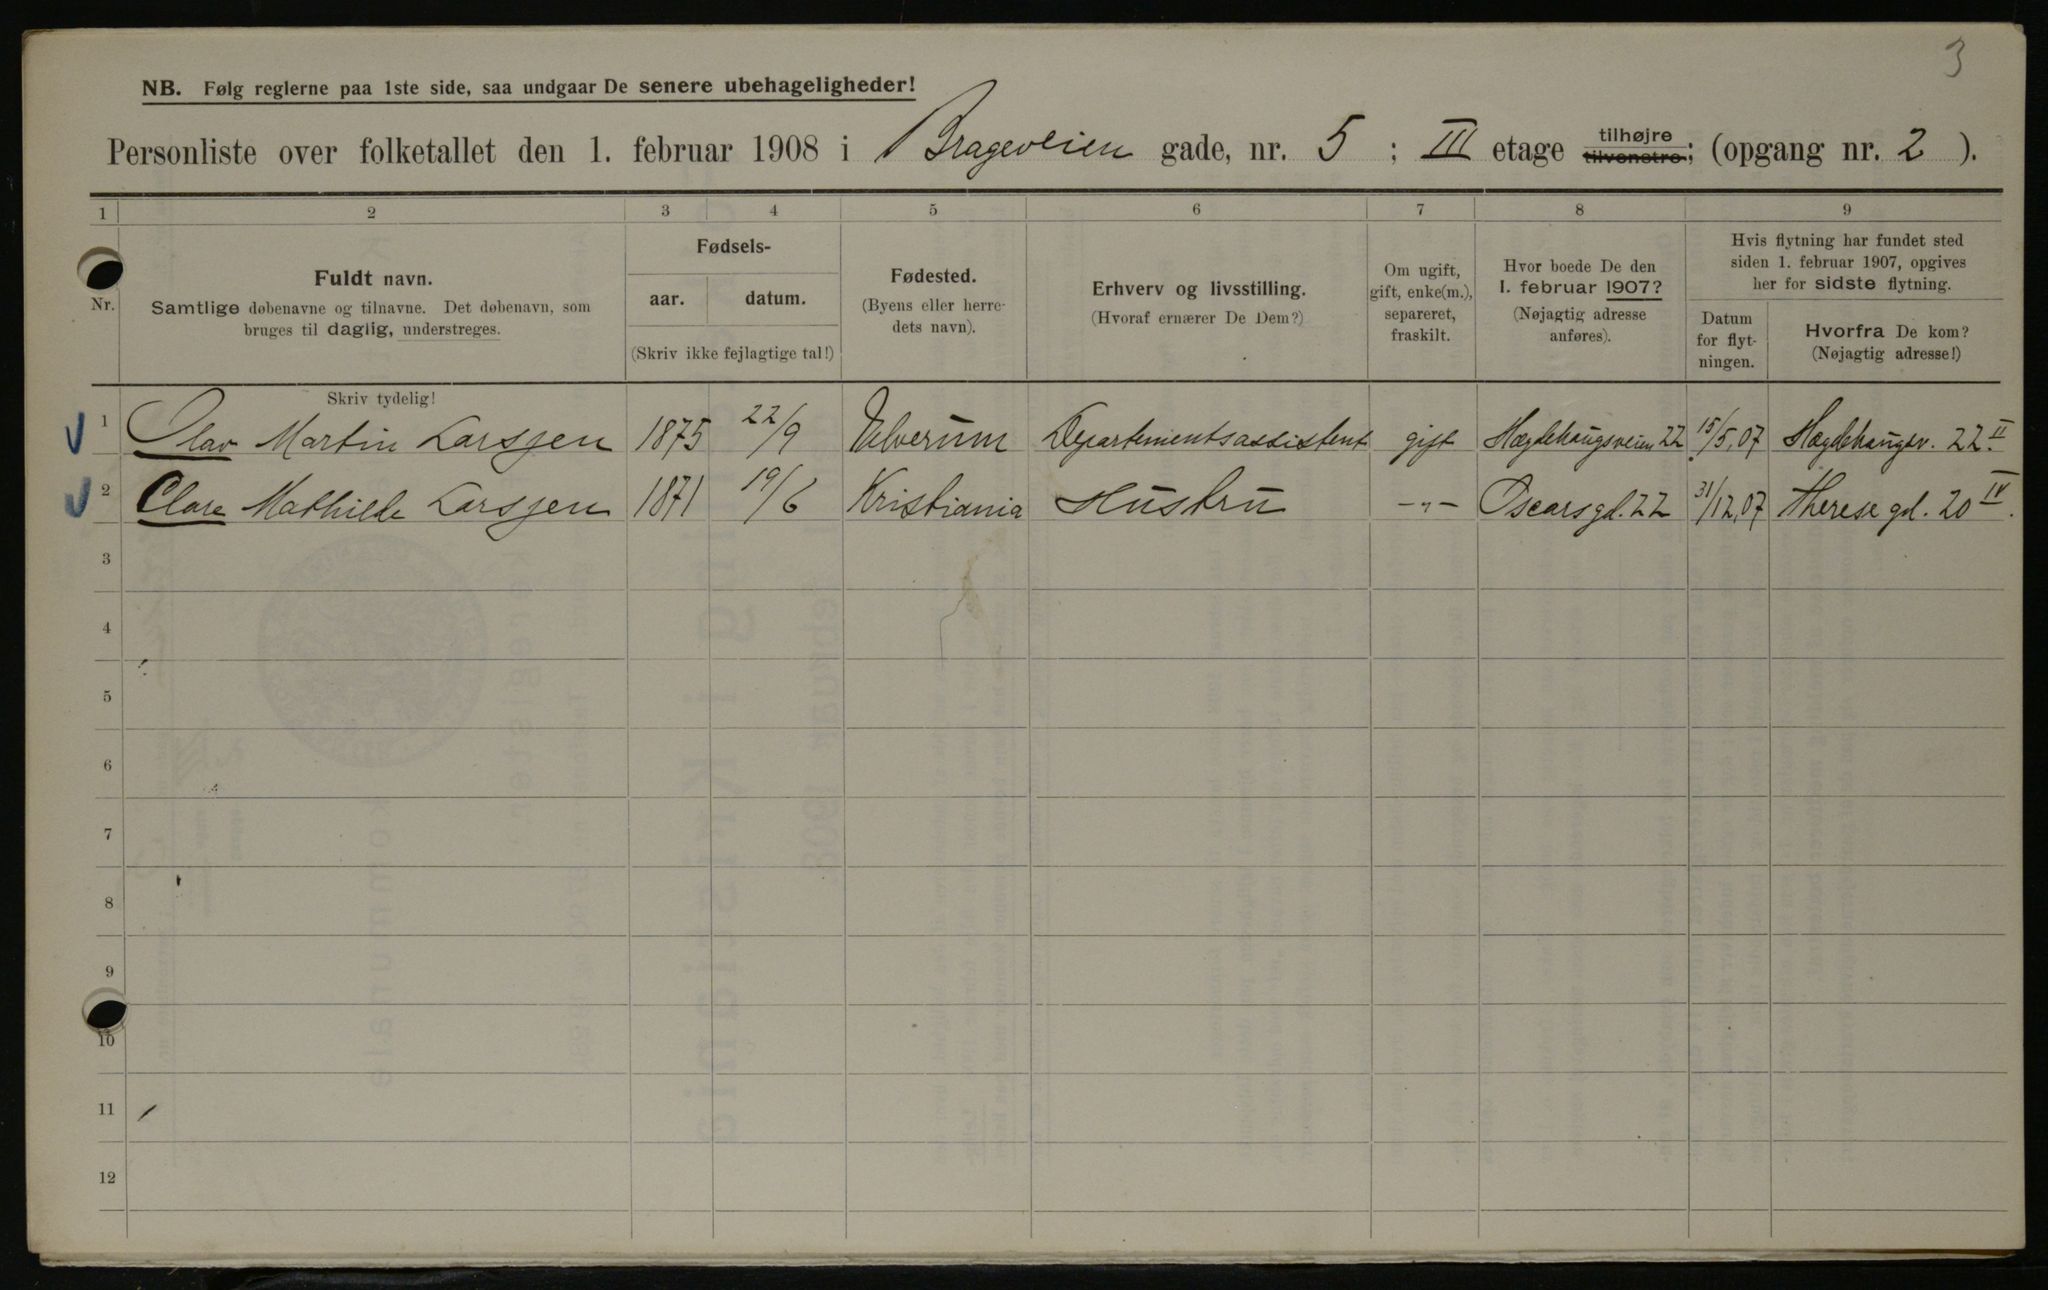 3
NB. Følg reglerne paa 1ste side, saa undgaar De senere ubehageligheder!
Personliste over folketallet den 1. februar 1908 i Brageveien gade, nr. 5 ; III etage tilhøjre tilvenstre; (opgang nr. 2 ).
1 2 3 4 5 6 7 8 9
Nr.
Fuldt navn.
Samtlige døbenavne og tilnavne. Det døbenavn, som
bruges til daglig, understreges.
Fødsels-
aar. datum.
(Skriv ikke fejlagtige tal!)
Fødested.
(Byens eller herre-
dets navn).
Erhverv og livsstilling.
(Hvoraf ernærer De Dem?)
Om ugift,
gift, enke(m.),
separeret,
fraskilt.
Hvor boede De den
1. februar 1907?
(Nøjagtig adresse
anføres).
Hvis flytning har fundet sted
siden 1. februar 1907, opgives
her for sidste flytning.
Datum
for flyt-
ningen.
Hvorfra De kom?
(Nøjagtig adresse!)
Skriv tydelig!
1 Olav Martin Larssen 1875 22/9 Elverum Departementsassistent gift Hægdehaugsveien 22 15/5.07 Hægdehaugsv. 22 II
2 Clara Mathilde Larssen 1871 19/6 Kristiania Hustru -"- Oscarsgd. 22 31/12.07 Therese gd. 20 IV.
3
4
5
6
7
8
9
10
11
12